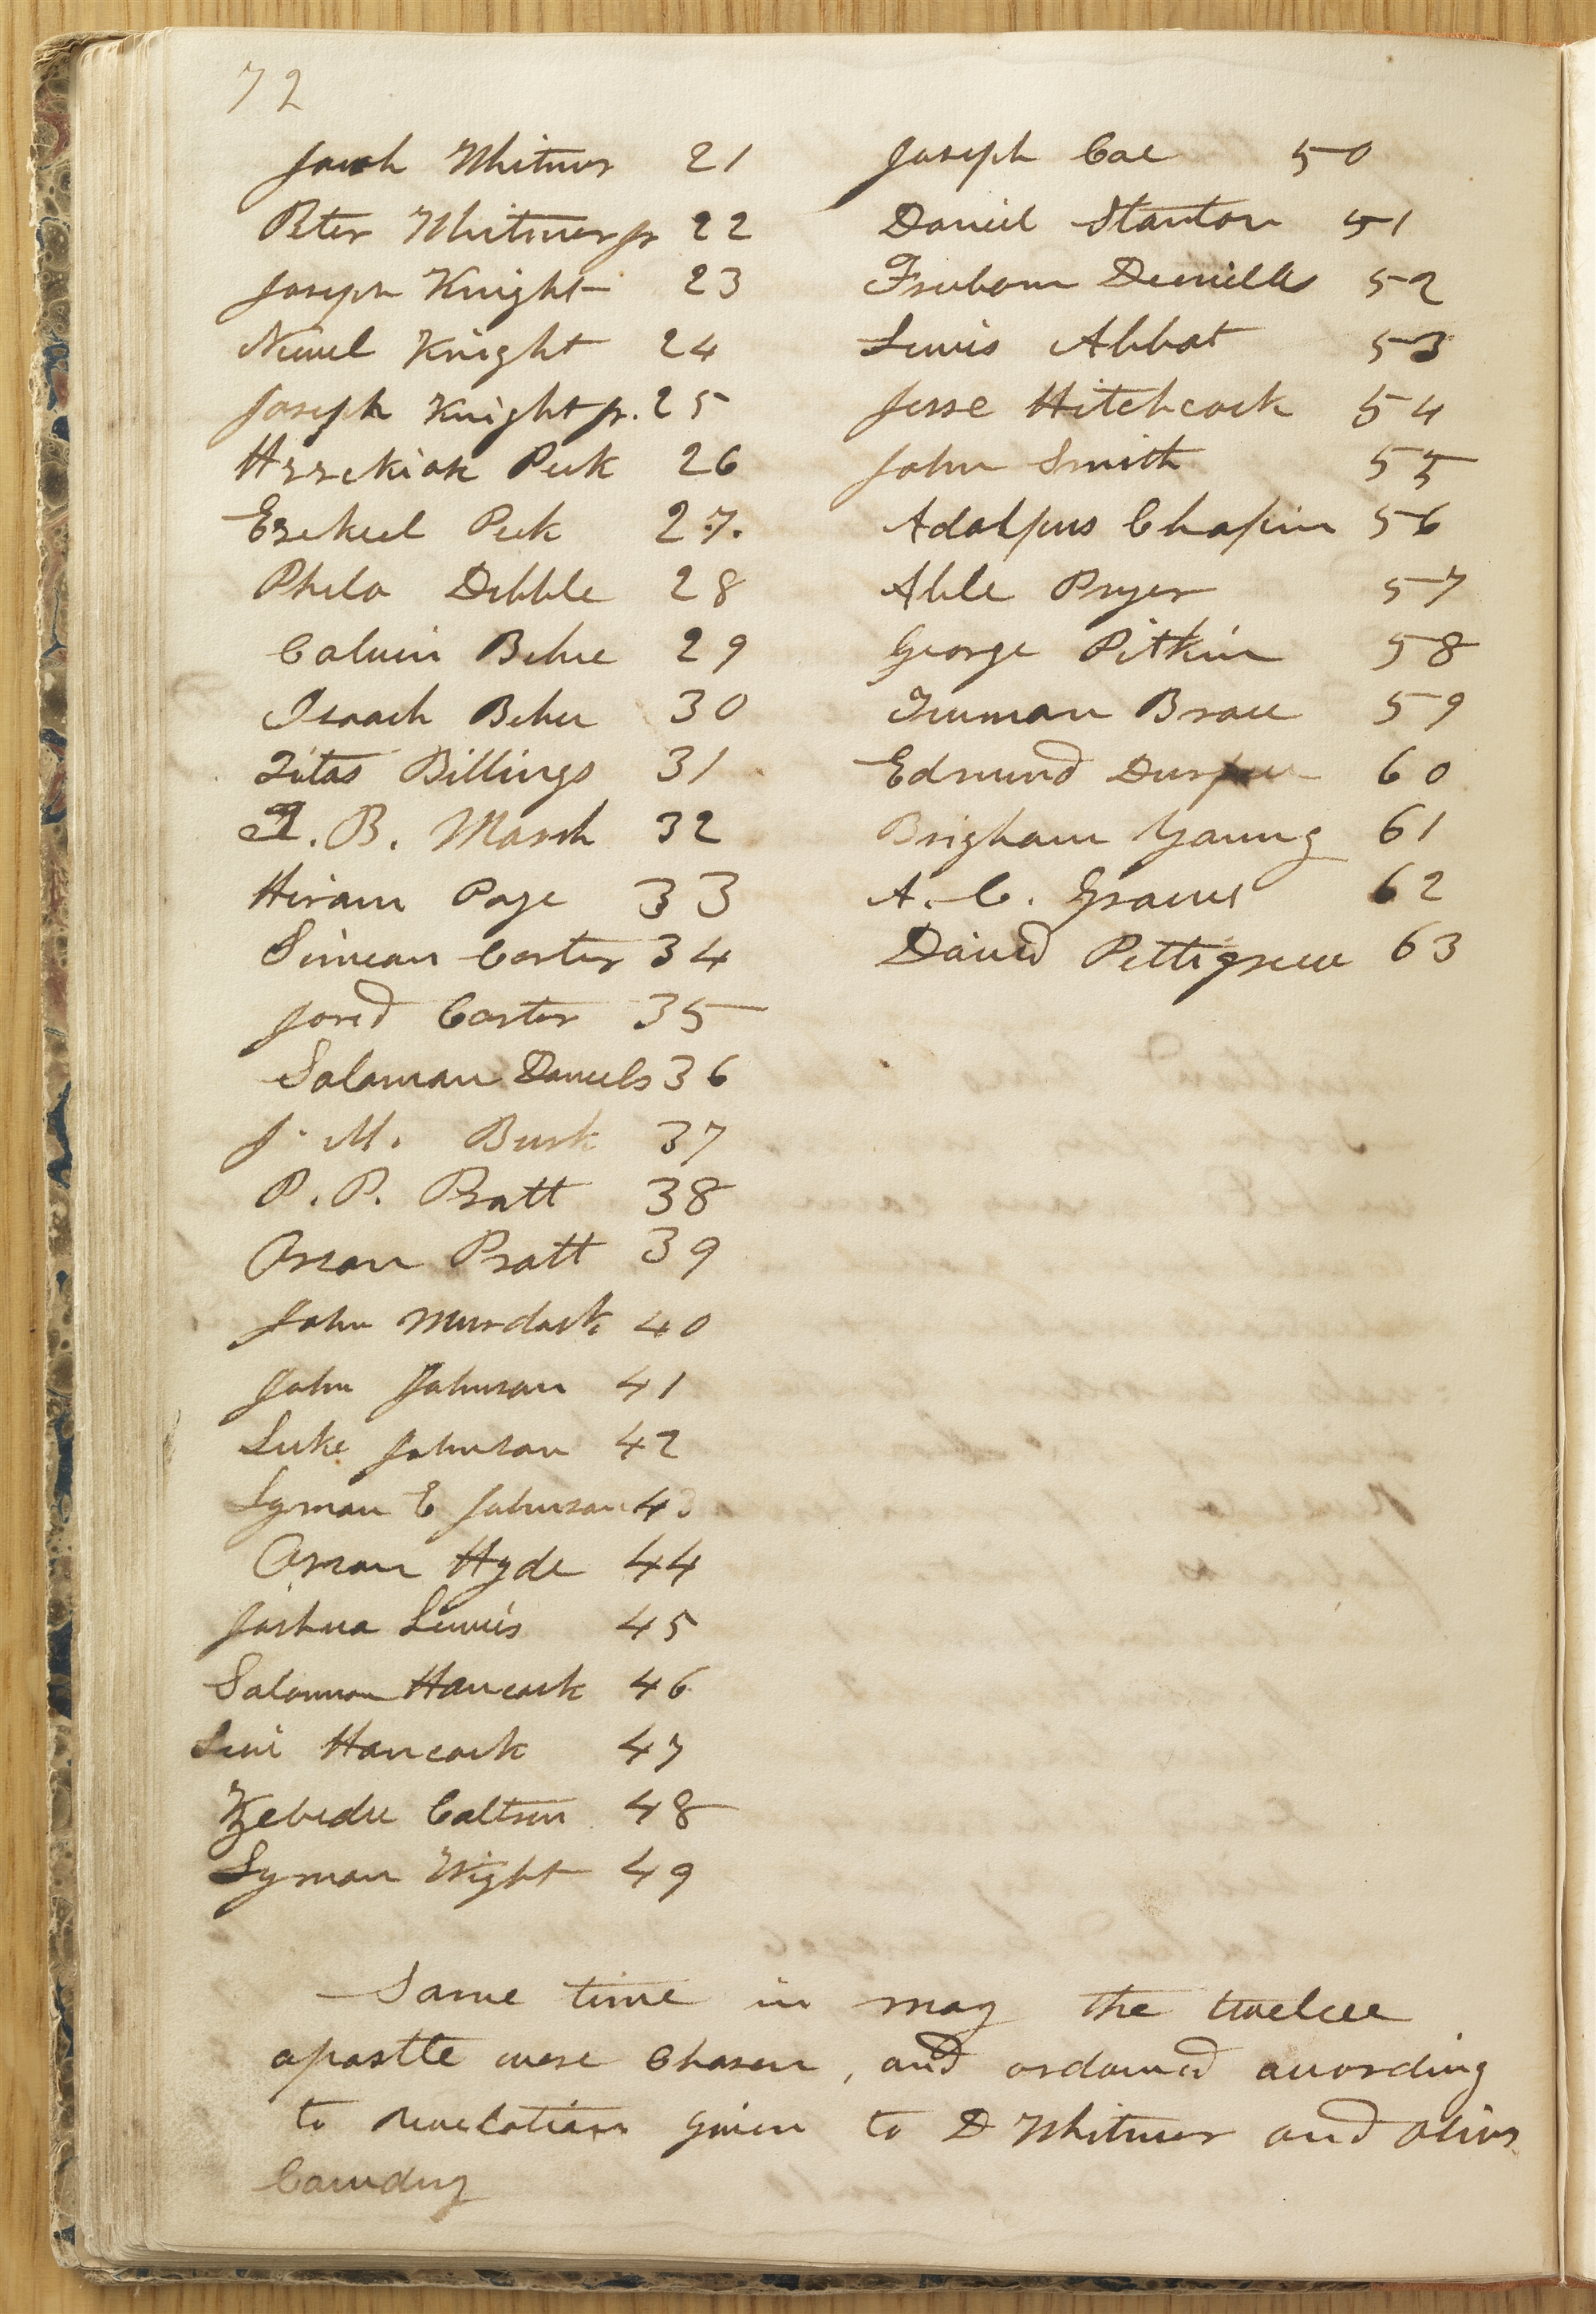 72
Jacob Whitmer 21
Peter Whitmer jr 22
Joseph Knight 23
Newel Knight 24
Joseph Knight jr. 25
Hezekiah Peck 26
Ezekiel Peck 27.
Philo Dibble 28
Calvin Bebee 29
Isaach Bebee 30
Titas Billings 31
T. B. Marsh 32
Hiram Page 33
Simean Carter 34
Jared Carter 35
Saloman Daniels 36
J. M. Burk 37
P. P. Pratt 38
Orson Pratt 39
John Murdock 40
John Johnson 41
Luke Johnson 42
Lyman E Johnson 43
Orson Hyde 44
Joshua Lewis 45
Salomon Hancock 46
Levi Hancock 47
Zebedee Coltrin 48
Lyman Wight 49
Joseph Coe 50
Daniel Stanton 51
Freebourn 52
Lewis Abbot 53
Jesse Hitchcock 54
John Smith 55
Adolpus Chapin 56
Able Pryer 57
George Pitkin 58
Truman Brace 59
Edmund Durfee 60
Brigham Young 61
A. C. Graves 62
David Pettigrew 63
Same time in may the twelve
apostle were chosen, and ordained according
to revelation given to D Whitmer and Oliver
Cowdery